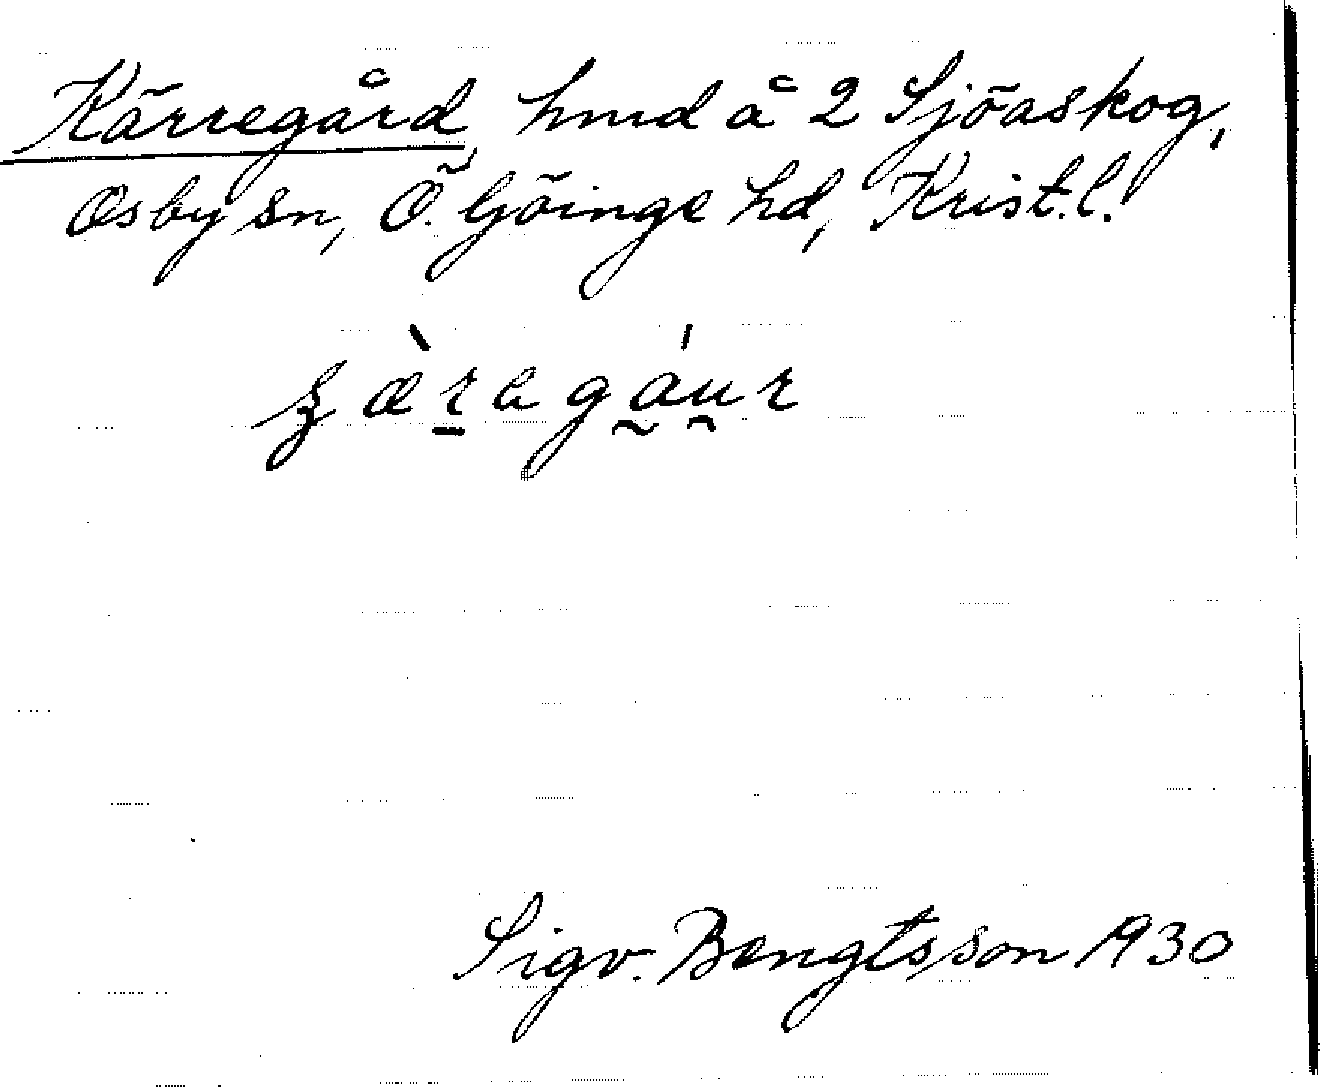 Kärregård hmd å 2 Sjöaskog,
Osby sn, Ö. Göinge hd, Krist.l.
Sigv. Bengtsson 1930